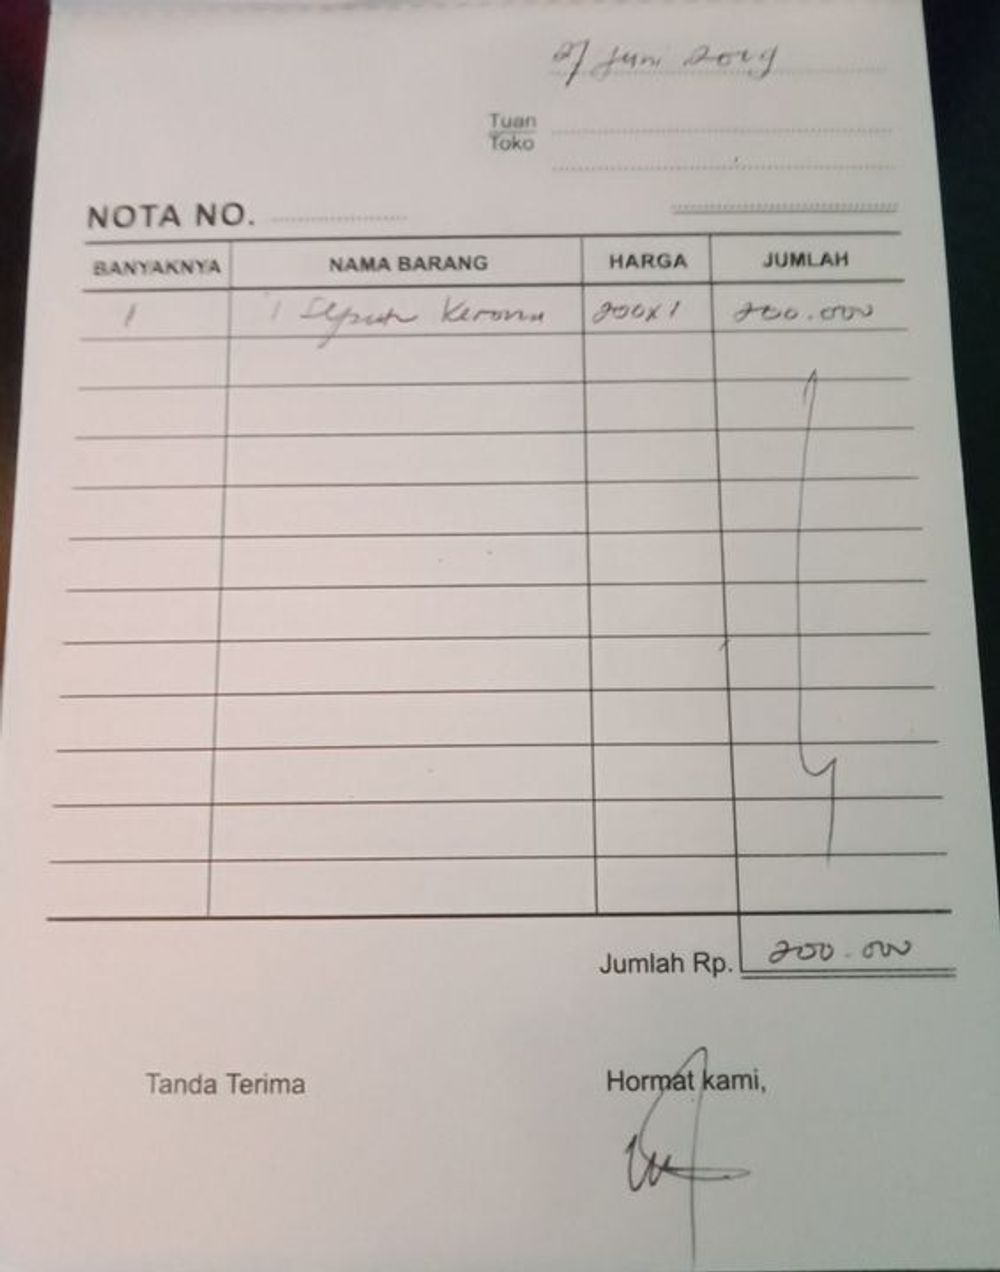 27 Juni 2019
Tuan
Toko
NOTA NO.
BANYAKNYA NAMA BARANG HARGA JUMLAH
1 1 200x1 200.000
Jumlah Rp. 200.000
Tanda Terima Hormat kami,